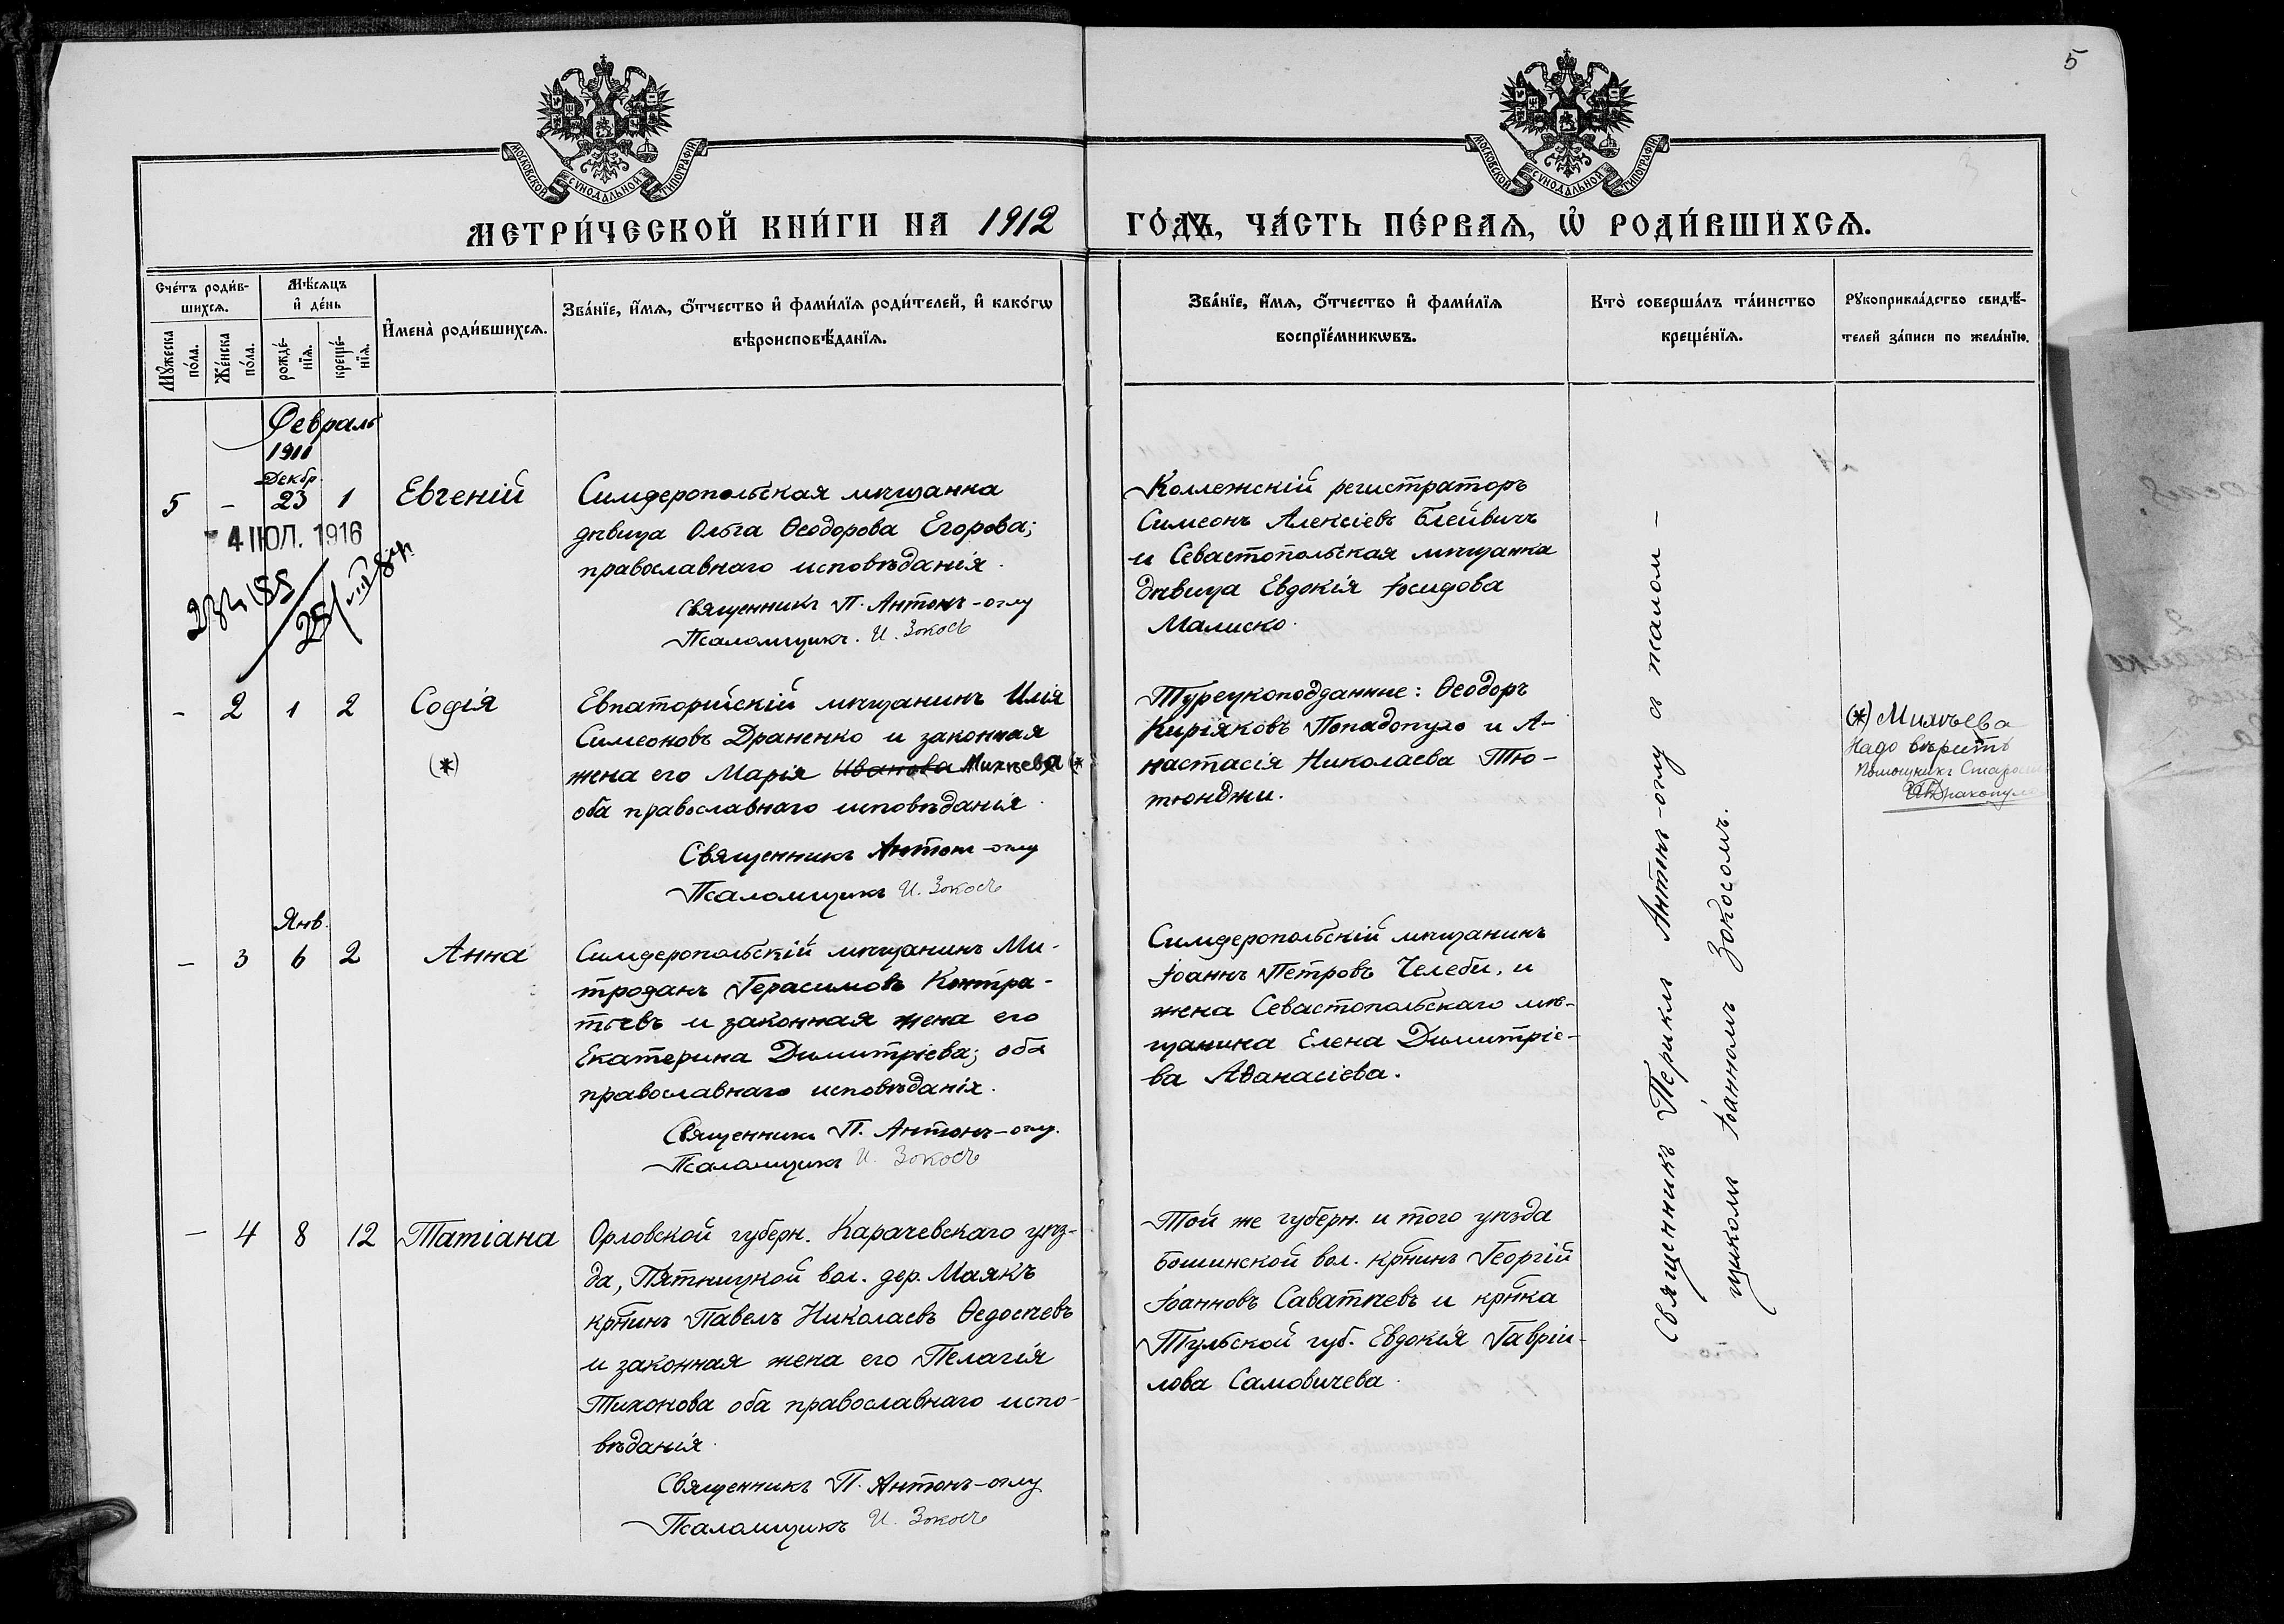 5
МОСКОВСКОЙ СѴНОДАЛЬНОЙ ТИПОГРАФІИ
МОСКОВСКОЙ СѴНОДАЛЬНОЙ ТИПОГРАФІИ
МЕТРИ́ЧЕСКОЙ КНИ́ГИ НА 1912 ГО́ДЪ, ЧА́СТЬ ПЕ́РВАѦ, Ѽ РОДИ́ВШИХСѦ.
Сче́тъ роди́в-
шихсѧ.
Мꙋ́жеска
по́ла.
Же́нска
по́ла.
Мѣ́сѧцъ
и҆ де́нь
рожде́-
нїѧ.
креще́-
нїѧ.
И҆мена̀ роди́вшихсѧ.
Зва́нїе, и҆́мѧ, ѻ҆́тчество и҆ фами́лїѧ роди́телей, и҆ како́гѡ
вѣроисповѣ́данїѧ.
Зва́нїе, и҆́мѧ, ѻ҆́тчество и҆ фами́лїѧ
воспрїе́мникѡвъ.
Кто̀ соверша́лъ та́инство
креще́нїѧ.
Рꙋкоприкла́дство свидѣ́-
телей за́писи по жела́нїю.
Февраль
1911
Декбр.
5 - 23 1 Евгеній
4 ІЮЛ. 1916
Симферопольская мѣщанка
дѣвица Ольга Ѳеодорова Егорова;
православнаго исповѣданія.
Священникъ П. Антонъ-оглу
Псаломщикъ. И. Зокосъ
Коллежскій регистраторъ
Симеонъ Алексіевъ Блейвичъ
и Севастопольская мѣщанка
дѣвица Евдокія Іосифова
Малиско.
- 2 1 2 Софія
(*)
Евпаторійскій мѣщанинъ Илія
Симеоновъ Драненко и законная
жена его Марія Иванова Михѣева (*
оба православнаго исповѣданія.
Священникъ Антонъ-оглу
Псаломщикъ И. Зокосъ
Турецкоподданные: Ѳеодоръ
Киріяковъ Попадопуло и А-
настасія Николаева Тю-
тюнджи.
(*) Михѣева
надо вѣрить
Помощникъ Старосты
Янв.
- 3 6 2 Анна
Симферопольскій мѣщанинъ Ми-
трофанъ Герасимовъ Контра-
тьевъ и законная жена его
Екатерина Димитріева; оба
православнаго исповѣданія.
Священникъ П. Антонъ-оглу.
Псаломщикъ И. Зокосъ
Симферопольскій мѣщанинъ
Іоаннъ Петровъ Челеби, и
жена Севастопольскаго мѣ-
щанина Елена Димитріе-
ва Аѳанасіева.
- 4 8 12 Татіана
Орловской губерн. Карачевскаго уѣз-
да, Пятницкой вол. дер. Маякъ
крнинъ Павелъ Николаевъ Ѳедосѣевъ
и законная жена его Пелагія
Тихонова оба православнаго испо-
вѣданія.
Священникъ П. Антонъ-оглу
Псаломщикъ И. Зокосъ
Той же губерн. и того уѣзда
Бошинской вол. крнинъ Георгій
Іоанновъ Саватѣевъ и крнка
Тульской губ. Евдокія Гавріи-
лова Самовичева.
Священникъ Периклъ Антонъ-оглу с псалом-
щикомъ Іоанномъ Зокосомъ.